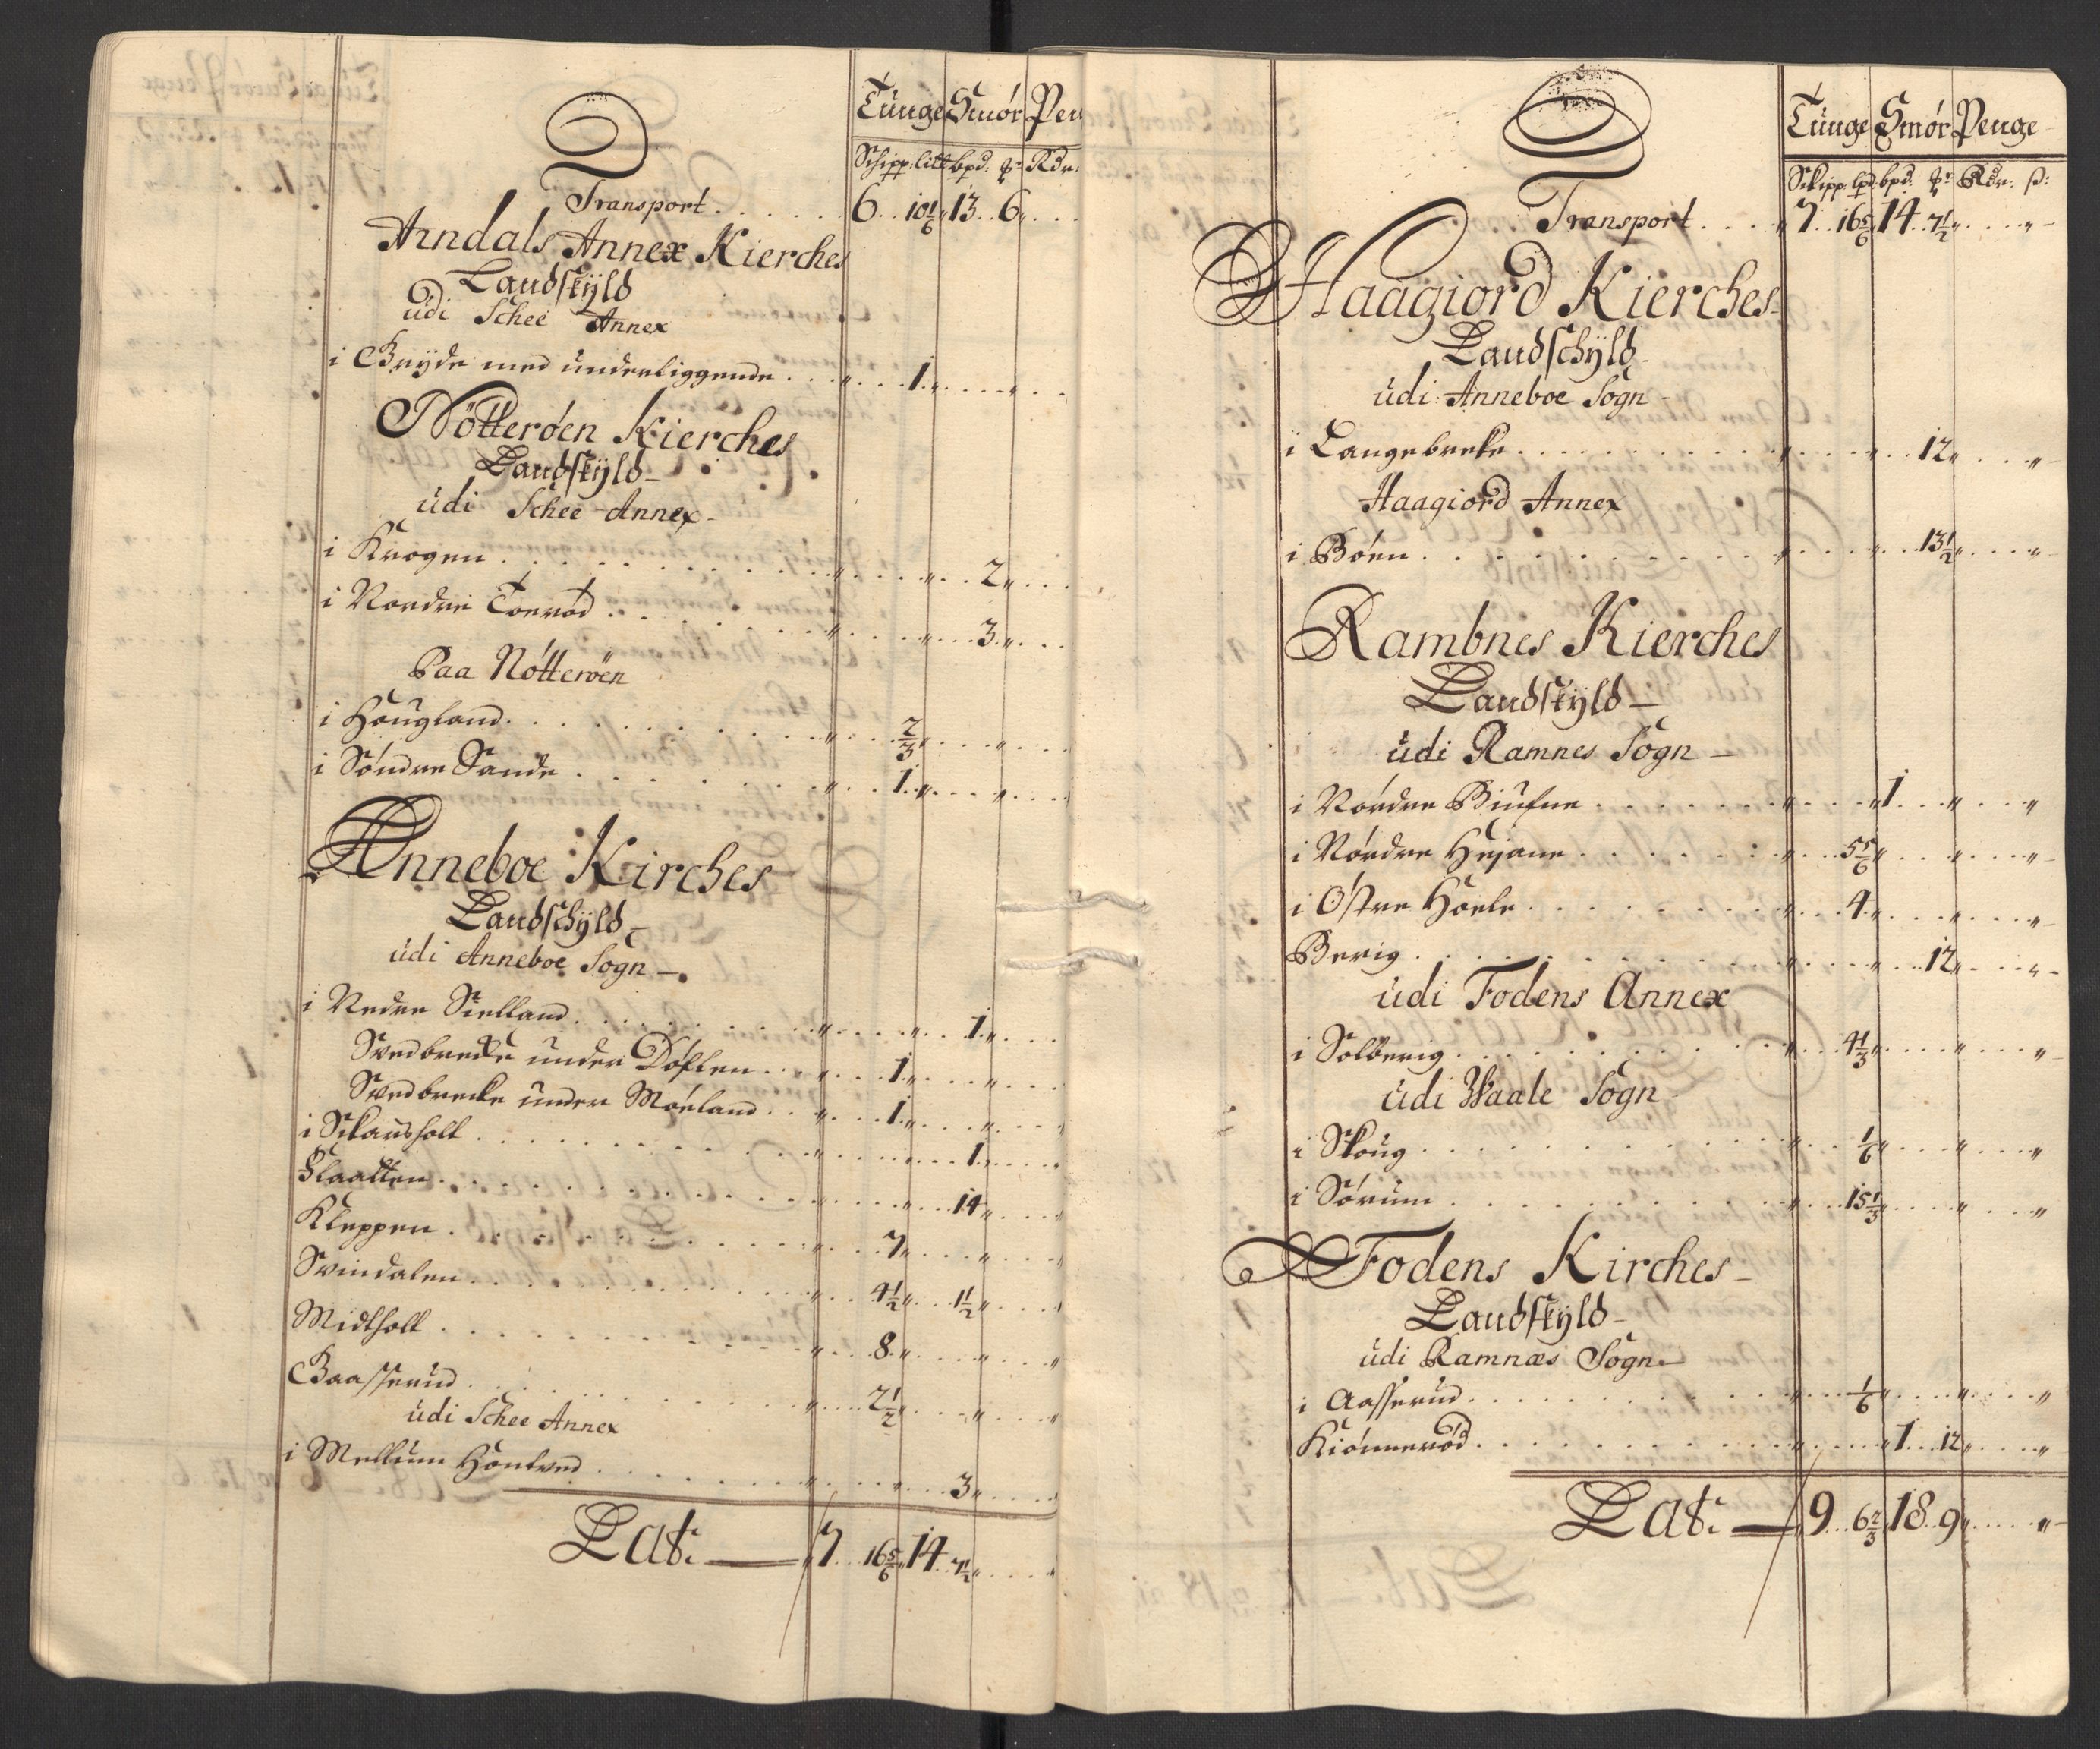 Tünge Smór Pen
Schipp: litt bpd: Rdr:
Transport . . . . . 6 . . 10 1/6 " 13 . . 6 " . . .
Arndals Annex Kierches
Landskÿld
üdi Schee Annex
i Brÿde med ünderliggende . . . " . . . 1 " . . . . " . . .
Nötteröen Kierches
Landskÿld
üdi Schee Annex
i Krogen . . . . . . . . " . . . . " . . 2 " . . .
i Nordre Toeröd . . . . . . . . " . . . . " . . 3 " . . .
Paa Nötteröen
i Hougland . . . . . . . . " . . 2/3 " . . . . " . . .
i Söndre Sande . . . . . . . " . . 1 " . . . . " . . .
Anneboe Kirches
Landschÿld
üdi Anneboe Sogn
i Nedre Sielland . . . . . . . " . . . . " . . 1 " . . .
Svedbrecke ünder Döflen . . . " . . . 1 " . . . . " . . .
Svedbrecke ünder Möeland . . " . . . 1 " . . . . " . . .
i Skausholt . . . . . . . . " . . . . " . . 1 " . . . "
Slaatten . . . . . . . . . " . . . . " . . 14 " . . . "
Kleppen . . . . . . . . . " . . . 7 " . . . . " . . . "
Svindalen . . . . . . . . " . . . 4 1/2 " . . 1 1/2 " . . . "
Midtholt . . . . . . . . . " . . . 8 " . . . . " . . . "
Baasserud . . . . . . . . " . . . 2 1/2 " . . . . " . . . "
üdi Schee Annex
i Mellum Hontved . . . . . . " . . . . " . . 3 " . . . "
Lat: — " 7 . . 16 5/6 " 14 . . 7 1/2 " . . . "
Tünge Smór Penge
Skipp: lpd: bpd: Rdr: ß:
Transport . . . . " 7 . . 16 5/6 " 14 . . 7 1/2 " . . . . "
Haagiord Kierches
Landschÿld
üdi Anneboe Sogn
i Langebreke . . . . . . . . " . . . . " . . 12 " . . . "
Haagiord Annex
i Böen . . . . . . . . . . " . . . . " . . 13 1/2 " . . . "
Rambnes Kierches
Landskÿld
üdi Ramnes Sogn
i Nördre Biufne . . . . . . . " . . . . " 1 . . . " . . . "
i Nördre Hejane . . . . . . . " . . . 5 5/6 " . . . . " . . . "
i Östre Hoele . . . . . . . . " . . . 4 " . . . . " . . . "
Berig . . . . . . . . . . " . . . . " . . 12 " . . . "
üdi Fodens Annex
i Solberig . . . . . . . . . " . . . 4 1/3 " . . . . " . . . "
üdi Waale Sogn
i Skoug . . . . . . . . . . " . . . 1/6 " . . . . " . . . "
i Sörum . . . . . . . . . . " . . . 15 1/3 " . . . . " . . . "
Fodens Kirches
Landskÿld
üdi Ramnæs Sogn
i Aasserud . . . . . . . . . " . . . 1/6 " . . . . " . . . "
Kiönneröd . . . . . . . . . " . . . . " 1 . . 12 " . . . "
Lat: — " 9 . . 6 2/3 " 18 . . 9 " . . . "